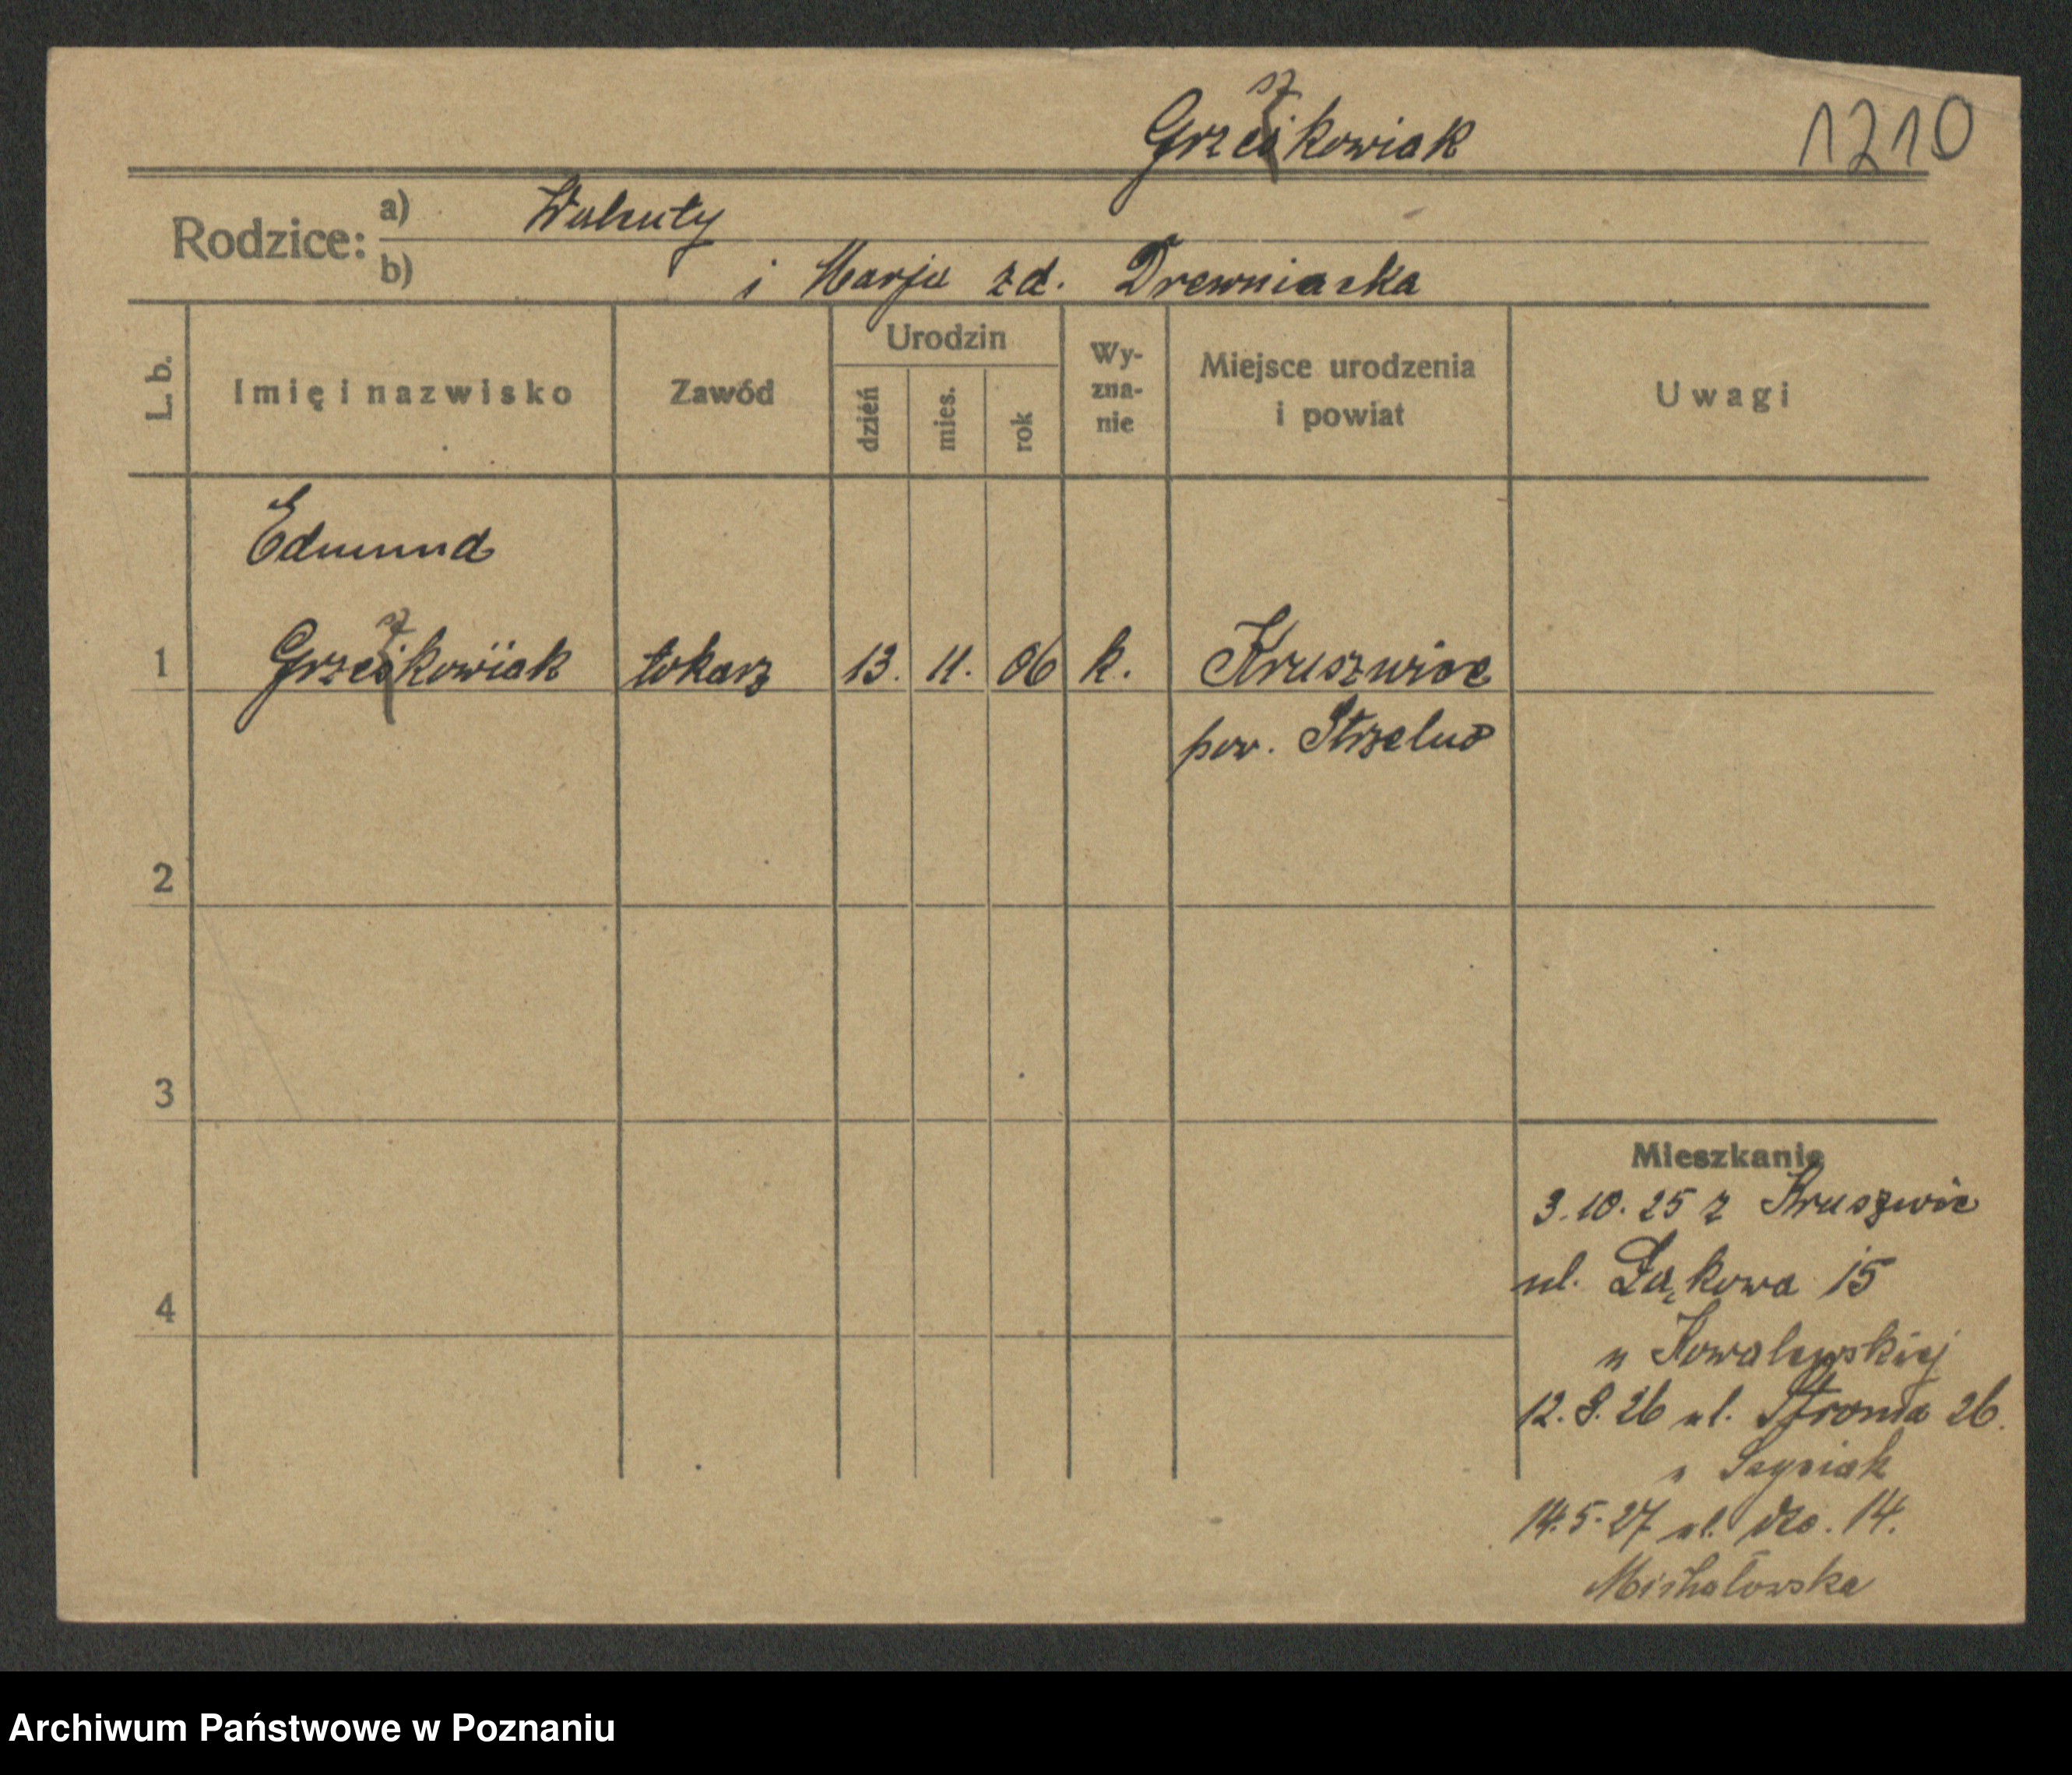 sz
Grześkowiak 1210
Rodzice: a) Walenty
b) i Marja zd. Drewniacka
L. b. Imię i nazwisko Zawód Urodzin dzień mies. rok Wy-zna-nie Miejsce urodzenia i powiat Uwagi
Edmund
sz
1 Grześkowiak tokarz 13. 11. 06 k. Kruszwice
pow. Strzelno
2
3
Mieszkanie
3.10.25 z Kruszwic
ul. Łąkowa 15
4
u Kowalewskiej
12.8.26 ul. Stroma 26.
u
14.5.27 ul. 14.
Michałowska
Archiwum Państwowe w Poznaniu